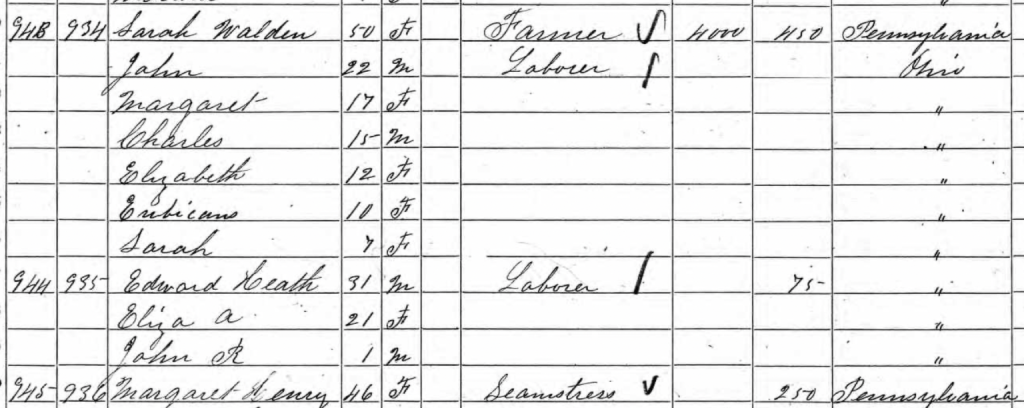 948 934 Sarah Walden 50 F Farmer 4000 450 Pennsylvania
John 22 M Laborer Ohio
Margaret 17 F "
Charles 15 M "
Elizabeth 12 F "
10 F "
Sarah 7 F "
944 935 Edward Heath 31 M Laborer 75 "
Eliza A 21 F "
John R 1 M "
945 936 Margaret Henry 46 F Seamstress 250 Pennsylvania